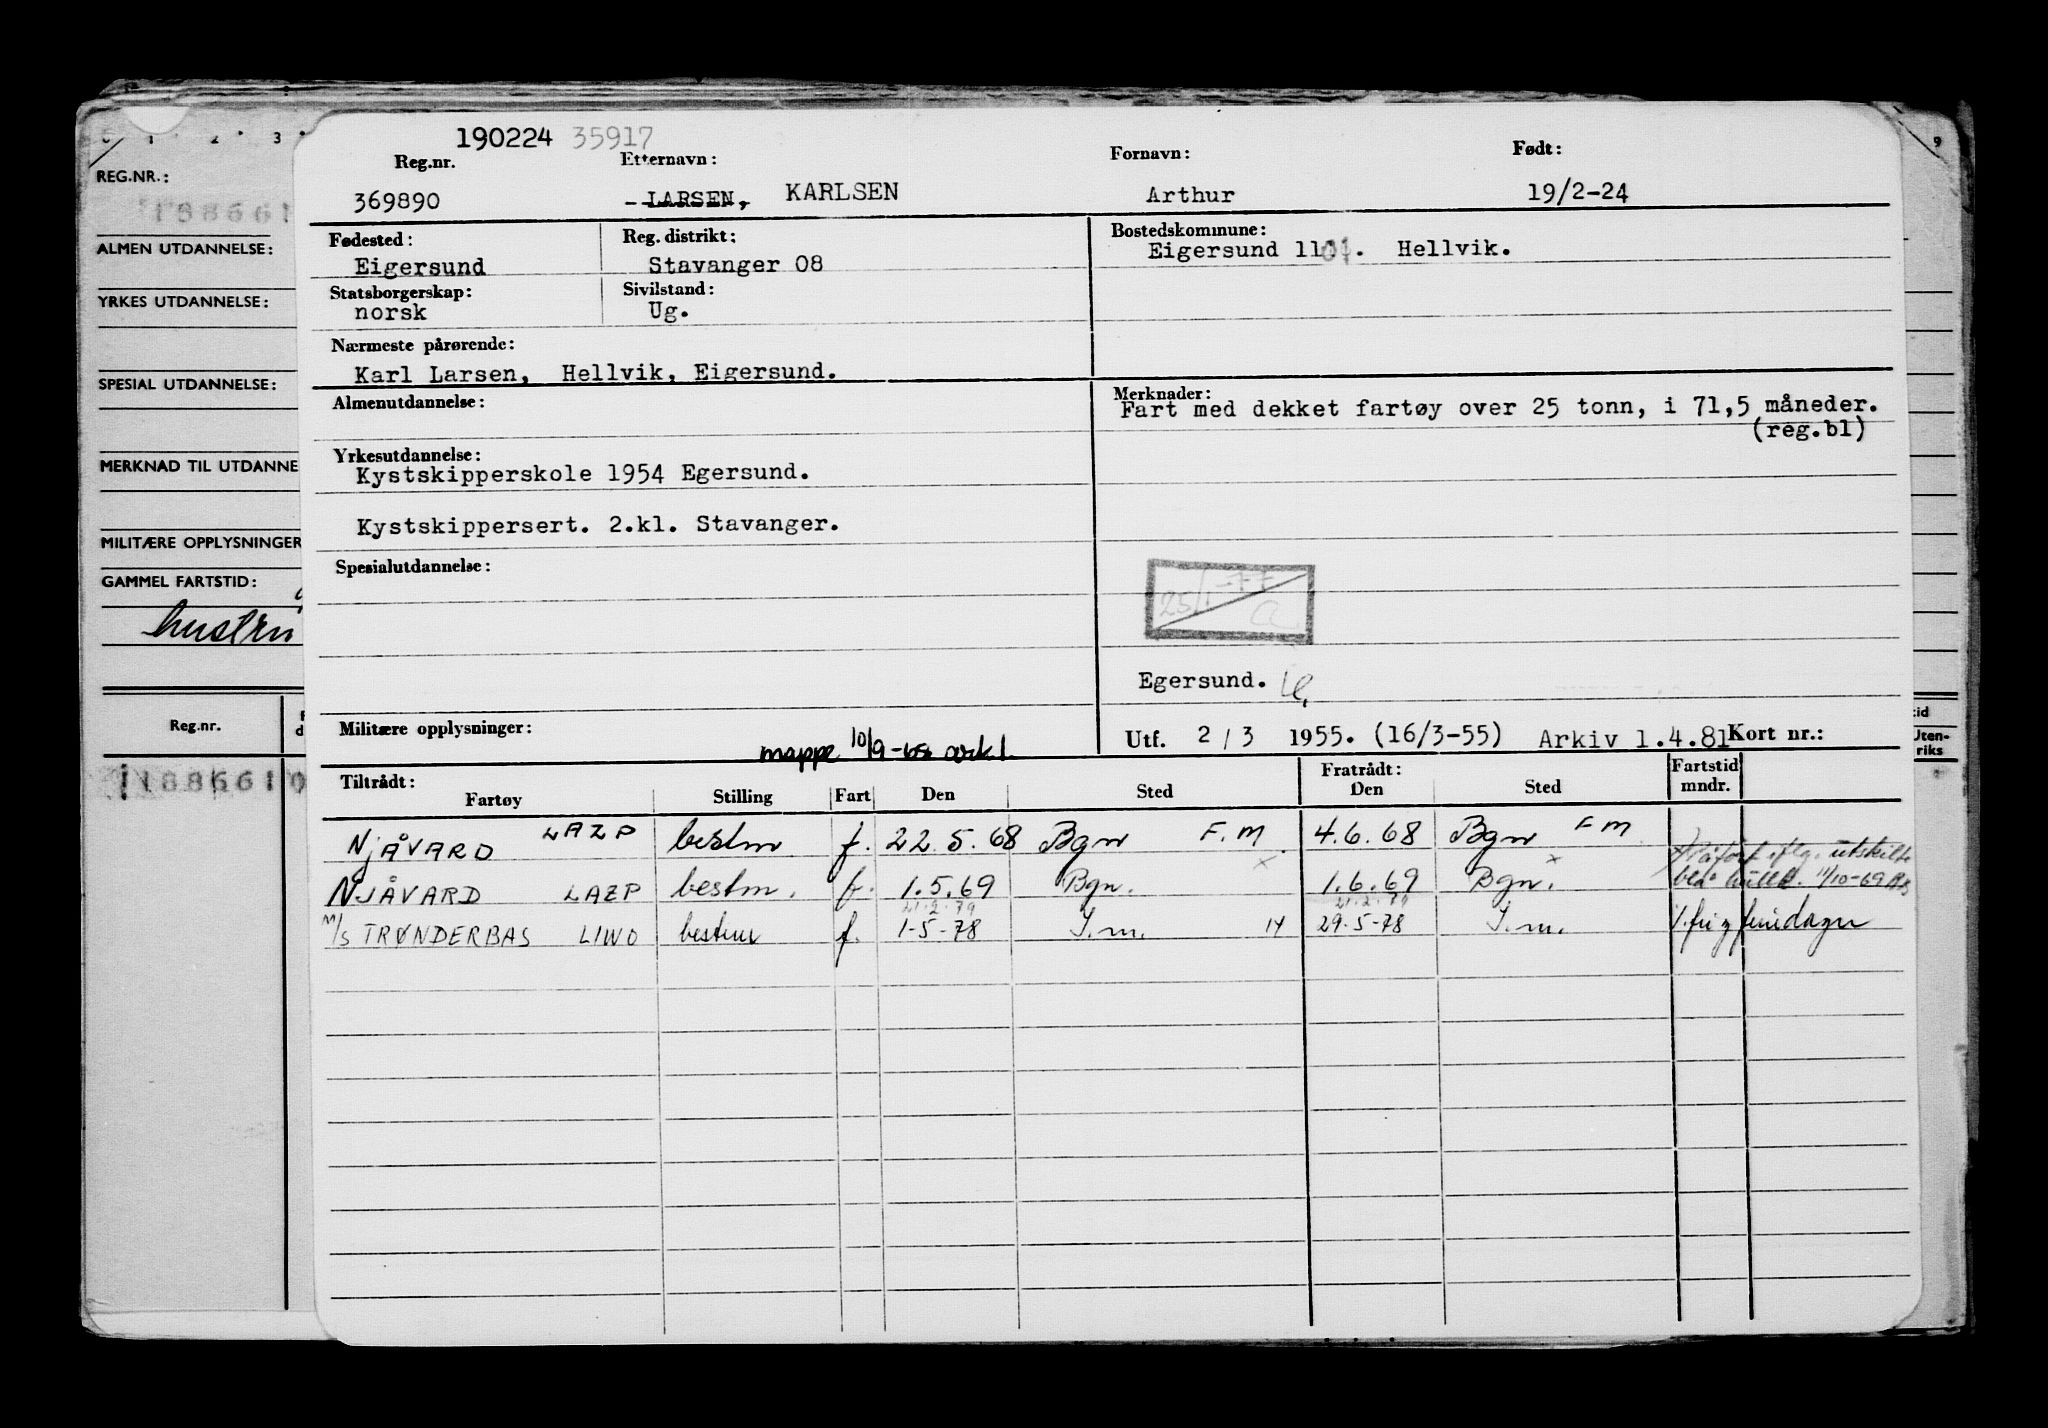 190224 35917
Reg.nr. Etternavn: Fornavn: Født:
369890 -LARSEN, KARLSEN Arthur 19/2-24
Fødested: Reg. distrikt: Bostedskommune:
Eigersund Stavanger 08 Eigersund 1101. Hellvik.
Statsborgerskap: Sivilstand:
norsk Ug.
Nærmeste pårørende:
Karl Larsen, Hellvik, Eigersund.
Almenutdannelse: Merknader:
Fart med dekket fartøy over 25 tonn, i 71,5 måneder.
(reg.bl)
Yrkesutdannelse:
Kystskipperskole 1954 Egersund.
Kystskippersert. 2.kl. Stavanger.
Spesialutdannelse:
25/1-77
Egersund.
Militære opplysninger: mappe 10/9-65 arkl.
Utf. 2/3 1955. (16/3-55) Arkiv 1.4.81 Kort nr.:
Tiltrådt: Fratrådt: Fartstid
Fartøy Stilling Fart Den Sted Den Sted mndr.
NJÅVARD LAZP bestm f. 22.5.68 Bgn F.M. 4.6.68 Bgn FM
NJÅVARD LAZP bestm. f. 1.5.69 Bgn. 1.6.69 Bgn. utskilte 11/10-69
21.2.79 21.2.79
M/S TRØNDERBAS LIWO bestm f. 1-5-78 I.m. 14 29.5-78 I.m.
REG.NR.:
188661
ALMEN UTDANNELSE:
YRKES UTDANNELSE:
SPESIAL UTDANNELSE:
MERKNAD TIL UTDANNE
MILITÆRE OPPLYSNINGER
GAMMEL FARTSTID:
Reg.nr.
1188661 0
tid
Uten-
riks